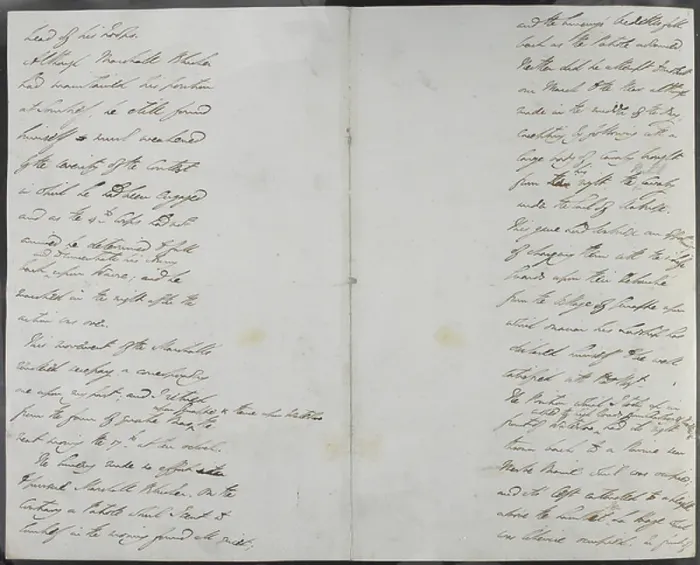 head of his troops.
Although Marshall Blucher
had maintained his position
at Sombref, he still found
himself much weakened
by the severity of the contest
in which he had been engaged
and as the 4th Corps had not
arrived he determined to fall
and to concentrate his Army
back upon Wavre; and he
marched in the night after the
action was over.
This movement of the Marshalls
rendered necessary a corresponding
one upon my part; and I retired
upon Genappe & thence upon Waterloo
from the farm of Quatre Bras, the
next morning the 17th at ten oclock.
The Enemy made no effort to
pursue Marshall Blucher. On the
contrary a Patrole which I sent to
Sombref in the morning found all quiet;
and the Enemy's vedettes fell
back as the Patrole advanced
Neither did he attempt to molest
our March to the Rear although
made in the middle of the day
excepting by following with a
large body of Cavalry brought
from his right the Cavalry
under the Earl of Uxbridge.
This gave Lord Uxbridge an opportunity
of charging them with the 1st Life
Guards upon their debouche
from the Village of Genappe upon
which occasion his Lordship has
declared himself to be well
satisfied with that Regt.
The Position which I took up in
front of Waterloo, had its right
thrown back to a Ravine near
Merke Braine which was occupied,
and its left extended to a height
above the hamlet La Haye which
was likewise occupied. In front of